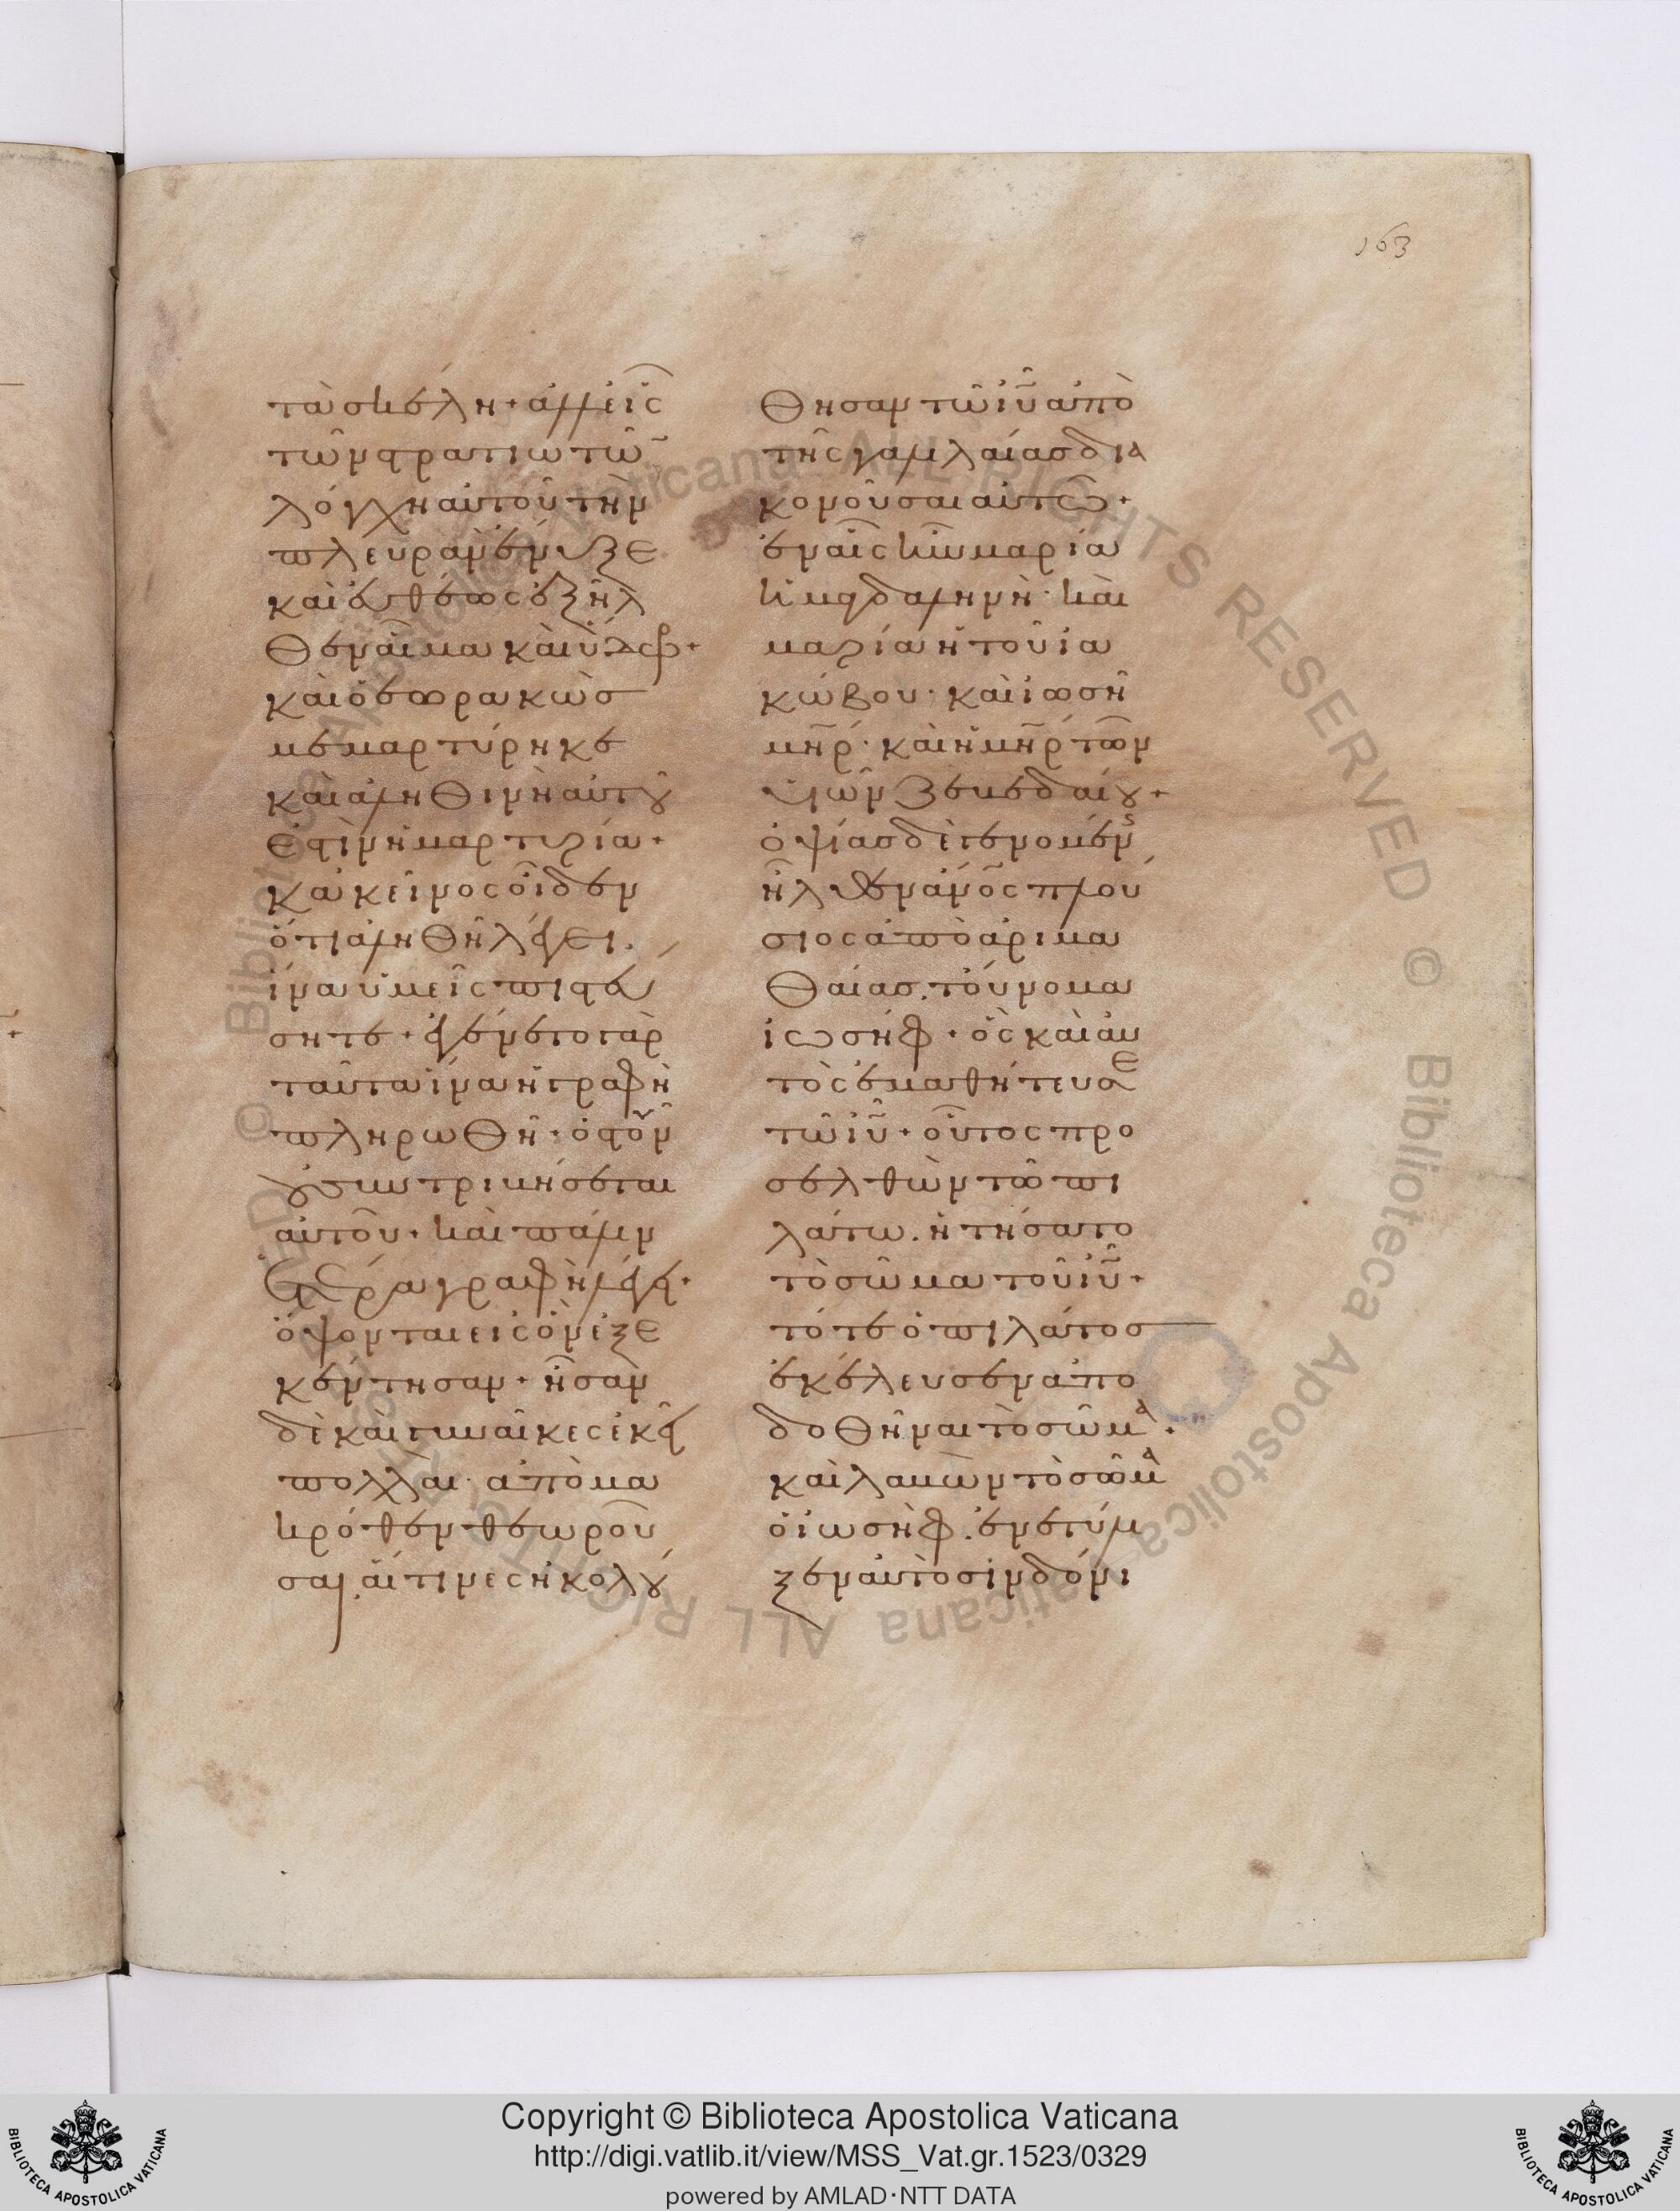 163
τὰ σκέλη· ἀλλ' εἷς
τῶν στρατιωτῶ̅
λόγχη αὐτοῦ τὴν
πλευρὰν ἔνυξε
καὶ εὐθέως ἐξῆλ
θεν αἷμα καὶ ὕδωρ·
καὶ ὁ ἑωρακὼς
μεμαρτύρηκε
καὶ ἀληθινὴ αὐτοῦ
ἐστὶν ἡ μαρτυρία·
κἀκεῖνος οἶδεν
ὅτι ἀληθῆ λέγει.
ἵνα ὑμεῖς πιστεύ
σητε· ἐγένετο γὰρ
ταῦτα ἵνα ἡ γραφὴ
πληρωθῆ· ὀστοῦν
οὐ συντριβήσεται
αὐτοῦ· καὶ πάλιν
ἑτέρα γραφὴ λέγει·
ὄψονται εἰς ὃν ἐξε
κέντησαν· ἦσαν
δὲ καὶ γυναῖκες ἐκεῖ
πολλαὶ· ἀπὸ μα
κρόθεν θεωροῦ
σαι. αἵτινες ἠκολού
θησαν τῶ ιῦ ἀπὸ
τῆς γαλιλαίας δια
κονοῦσαι αὐτῶ·
ἐν αἷς ἦν μαρία
ἡ μαγδαληνὴ· καὶ
μαρία ἡ τοῦ ἰα
κώβου· καὶ ἰωσῆ
μηρ· καὶ ἡ μηρ τῶν
υἱῶν ζεβεδαίου·
ὀψίας δὲ γενομένης
ἦλθεν ἀνος πλού
σιος ἀπὸ ἀριμα
θαίας. τοὔνομα
ἰωσήφ· ὃς καὶ αὐ
τὸς ἐμαθήτευσε
τῶ ιῦ· οὗτος προ
σελθὼν τῶ πι
λάτω. ἠτήσατο
τὸ σῶμα τοῦ ιῦ·
τότε ὁ πιλάτος
ἐκέλευσεν ἀπο
δοθῆναι τὸ σῶμα·
καὶ λαβὼν τὸ σῶμα
ὁ ἰωσὴφ. ἐνετύλι
ξεν αὐτὸ σινδόνι
Copyright © Biblioteca Apostolica Vaticana
http://digi.vatlib.it/view/MSS_Vat.gr.1523/0329
powered by AMLAD·NTT DATA
BIBLIOTECA APOSTOLICA VATICANA
BIBLIOTECA APOSTOLICA VATICANA
© Biblioteca Apostolica Vaticana ALL RIGHTS RESERVED © Biblioteca Apostolica Vaticana ALL RIGHTS RESERVED